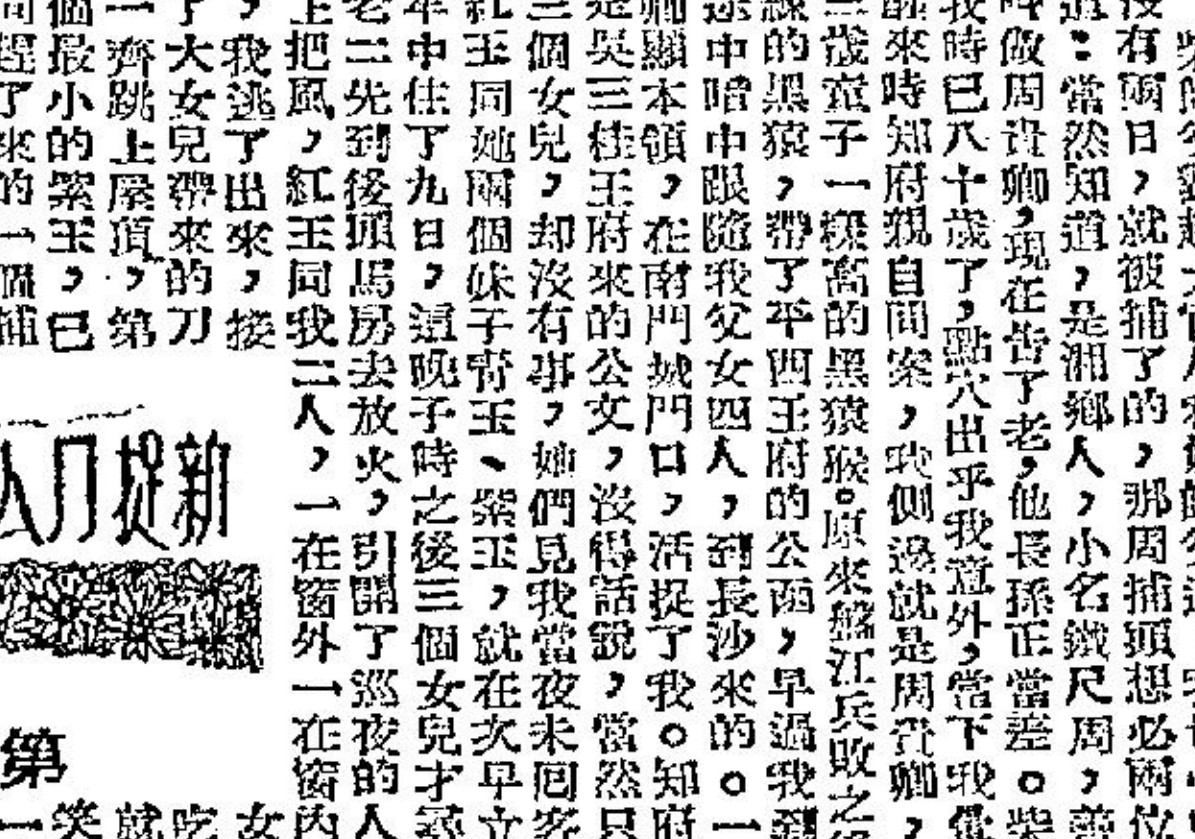 沒有兩日，就被捕了的，那周捕頭想必兩位
道：當然知道，是湘鄉人，小名鐵尺周，善
叫做周貴卿，現在告了老，他長孫正當差。柴
我時已八十歲了，點穴出乎我意外，當下我
來時知府親自問案，我側邊就是周貴卿，
三歲童子一樣高的黑猿猴。原來盤江兵敗之
線的黑猿，帶了平四王府的公函，早過我到
途中暗中跟隨我父女四人，到長沙來的。一
卿顯本領，在南門城門口，活捉了我。知府
是吳三桂王府來的公文，沒得話說，當然只
三個女兒，却沒有事，她們見我當夜未回客
紅玉同她兩個妹子青玉、紫玉，就在次早立
年中住了九日，這晚子時之後三個女兒才尋
老二先到後頭馬房去放火，引開了巡夜的人
上把風，紅玉同我二人，一在窗外一在窗內
，我逃了出來，接
了大女兒帶來的刀
一齊跳上屋頂，第
個最小的紫玉，已
同趕了來的一個捕
新捉刀人
第
女
吃
就
笑
一